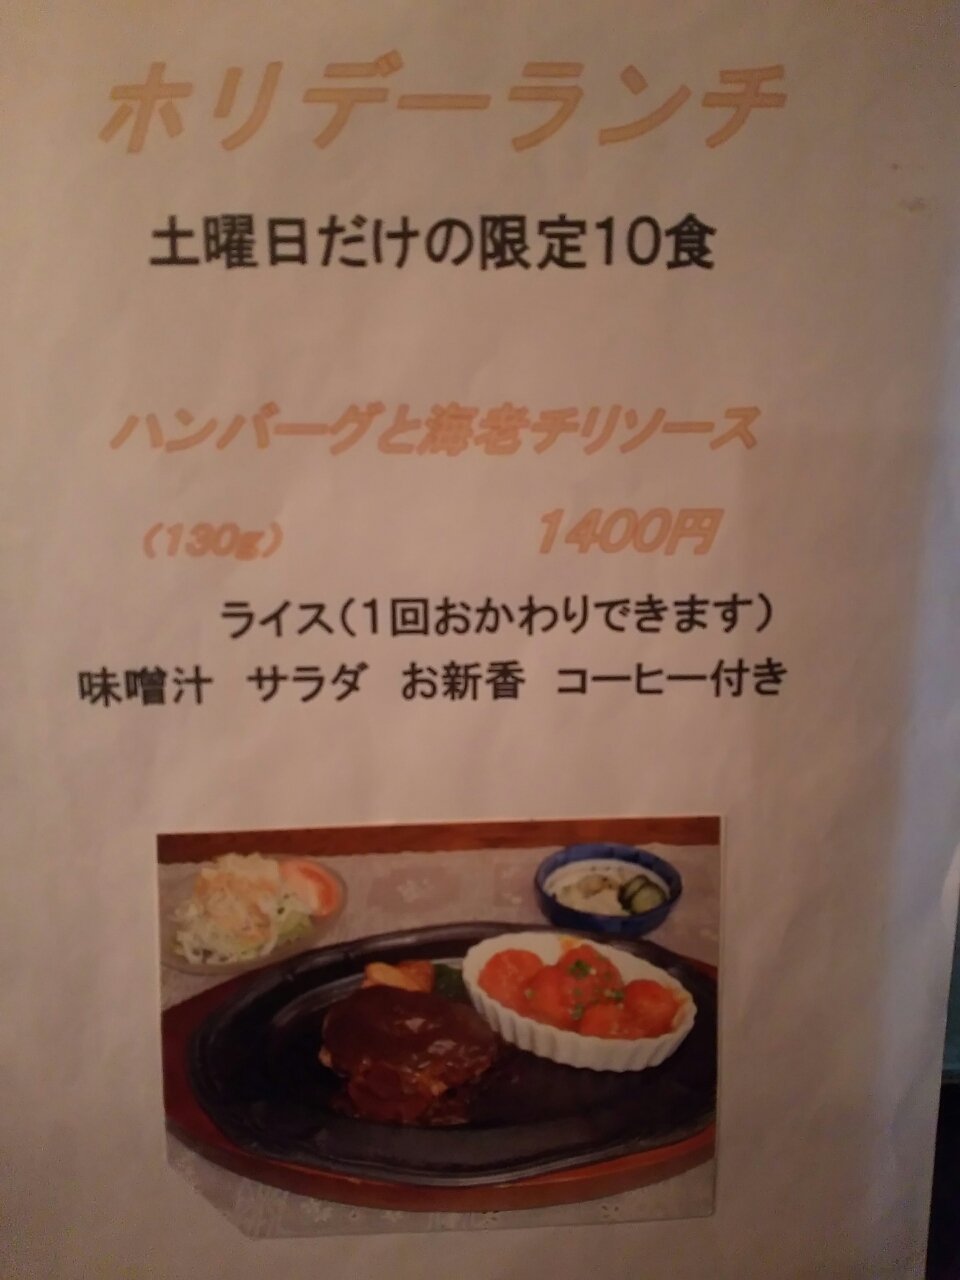 ホリデーランチ
土曜日だけの限定10食
ハンバーグと海老チリソース
（130g）　1400円
ライス（1回おかわりできます）
味噌汁　サラダ　お新香　コーヒー付き